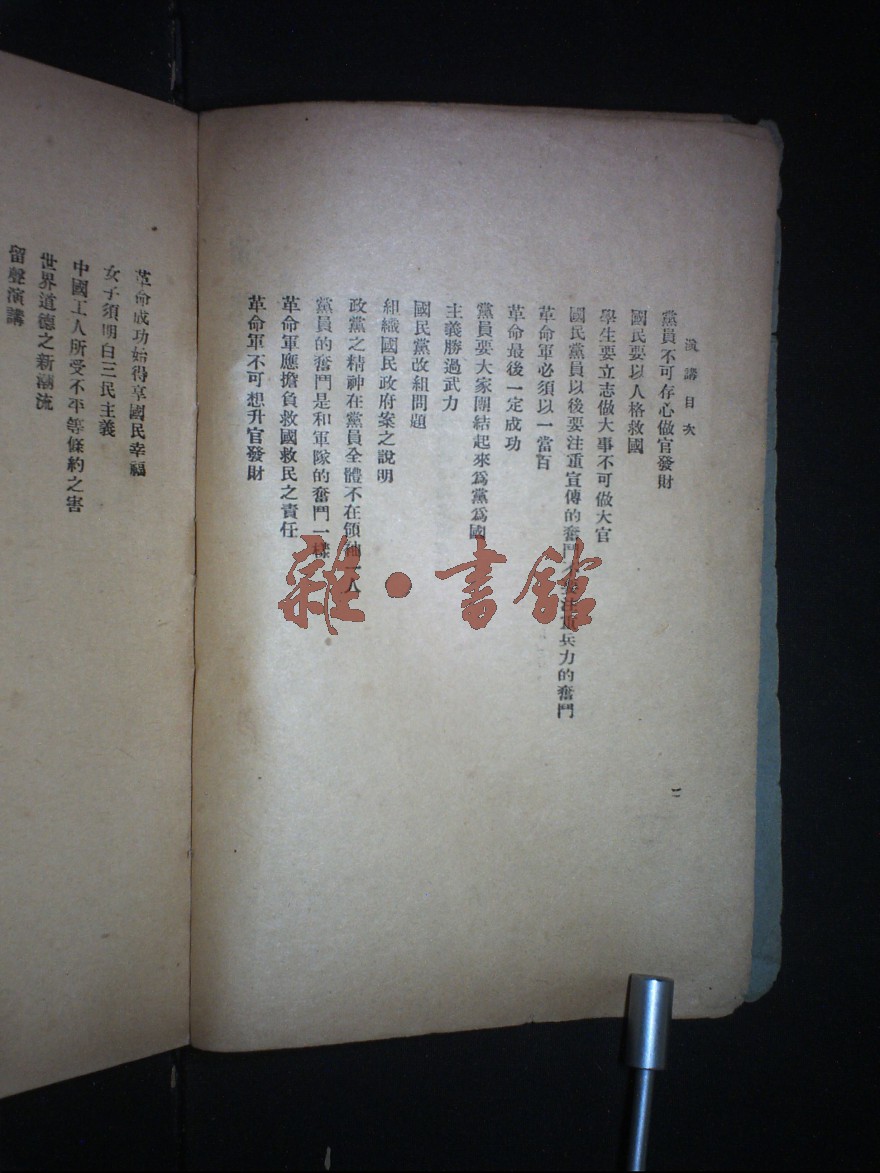 演講目次
黨員不可存心做官發財
國民要以人格救國
學生要立志做大事不可做大官
國民黨員以後要注重宣傳的奮鬥不要注重兵力的奮鬥
革命軍必須以一當百
革命最後一定成功
黨員要大家團結起來爲黨爲國
主義勝過武力
國民黨改組問題
組織國民政府案之說明
政黨之精神在黨員全體不在領袖一人
黨員的奮鬥是和軍隊的奮鬥一樣
革命軍應擔負救國救民之責任
革命軍不可想升官發財
二
革命成功始得享國民幸福
女子須明白三民主義
中國工人所受不平等條約之害
世界道德之新潮流
留聲演講
雜·書館